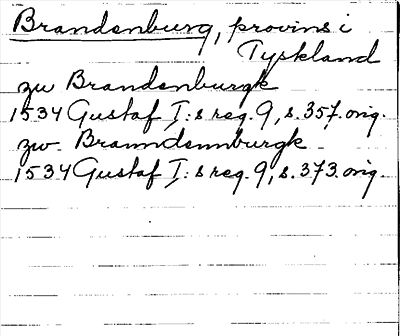 Brandenburg, provins i
Tyskland
zu Brandenburgk
1534 Gustaf I:s reg. 9, s. 357. orig.
zw. Branndennburgk
1534 Gustaf I:s reg. 9, s. 373. orig.